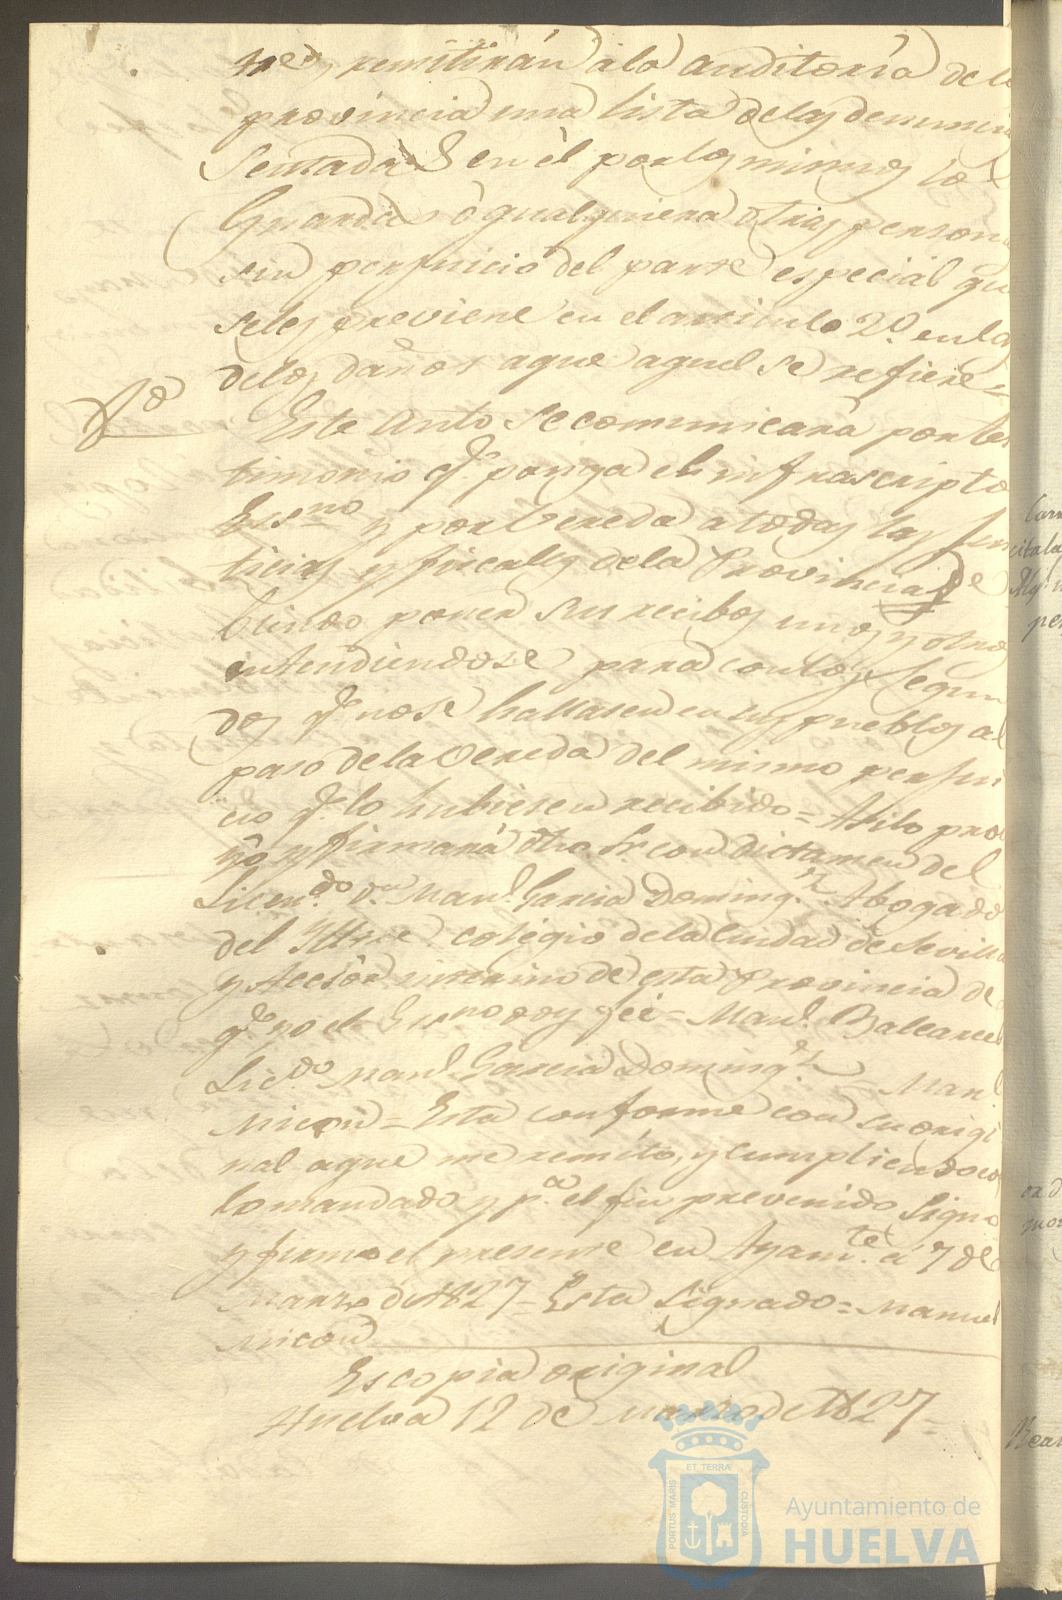 nes, remitirán à la auditoria de la
provincia una lista de las denuncias
Sentadas en èl por los mismos los
Guardas, ò qualquiera otras person
sin perjuicio del parte especial qu
se les previene en el articulo 2º en las
de los daños a que aquel se refiere =
Este Auto se comunicará por tes
timonio qe. ponga el infrascripto
Essno y por Vereda a todas las Jus
ticias y fiscales de la Provincia de
biendo poner sus recibos unos y otros
entendiendose para con los segun
dos qe. no se hallasen en sus pueblos al
paso de la Vereda del mismo perjui
cio qe. lo hubiesen recibido = Asi lo pro
yò y firmará dho. Sr. con dictamen del
Licendo. Dn. Manl. Garcia Domingz. Abogado
del Iltre. colegio de la Ciudad de Sevilla
y Acesòr interino de esta Provincia de
qe. yo el Essno doy feè = Manl. Balcarcel
Licdo. Manl. Garcia Domingz. = Manl.
Micon = Esta conforme con su origi
nal a que me remito, y cumpliendo co
lo mandado y pa. el fin prevenido Signo
y firmo el presente en Ayamte. à 7 de
Marzo de 1827 = Esta Signado = Manuel
Micon
Es copia original
Huelva 12 de Marzo de 1827 =
ET TERRA
PORTUS MARIS
CUSTODIA
Ayuntamiento de
HUELVA